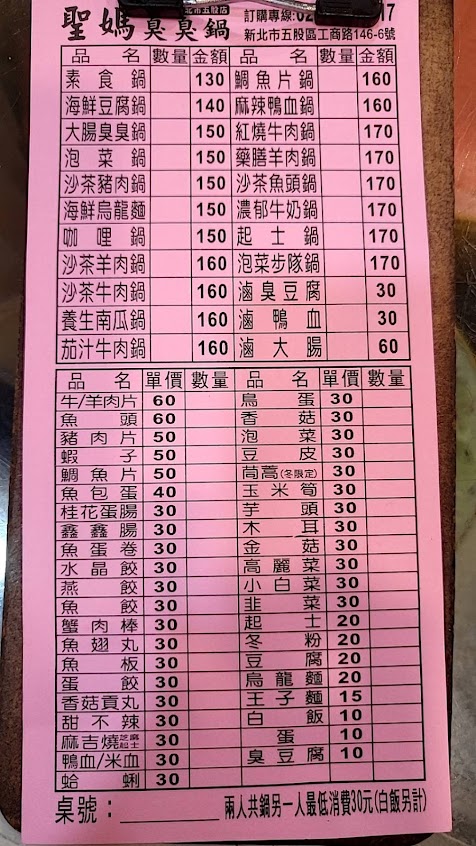 聖媽臭臭鍋 北市五股店 訂購專線:02 17
新北市五股區工商路146-6號
品名 數量 金額 品名 數量 金額
素食鍋 130 鯛魚片鍋 160
海鮮豆腐鍋 140 麻辣鴨血鍋 160
大腸臭臭鍋 150 紅燒牛肉鍋 170
泡菜鍋 150 藥膳羊肉鍋 170
沙茶豬肉鍋 150 沙茶魚頭鍋 170
海鮮烏龍麵 150 濃郁牛奶鍋 170
咖哩鍋 150 起士鍋 170
沙茶羊肉鍋 160 泡菜步隊鍋 170
沙茶牛肉鍋 160 滷臭豆腐 30
養生南瓜鍋 160 滷鴨血 30
茄汁牛肉鍋 160 滷大腸 60
品名 單價 數量 品名 單價 數量
牛/羊肉片 60 鳥蛋 30
魚頭 60 香菇 30
豬肉片 50 泡菜 30
蝦子 50 豆皮 30
鯛魚片 50 茼蒿(冬限定) 30
魚包蛋 40 玉米筍 30
桂花蛋腸 30 芋頭 30
鑫鑫腸 30 木耳 30
魚蛋卷 30 金菇 30
水晶餃 30 高麗菜 30
燕餃 30 小白菜 30
魚餃 30 韭菜 30
蟹肉棒 30 起士 20
魚翅丸 30 冬粉 20
魚板 30 豆腐 20
蛋餃 30 烏龍麵 20
香菇貢丸 30 王子麵 15
甜不辣 30 白飯 10
麻吉燒 起士 30 蛋 10
鴨血/米血 30 臭豆腐 10
蛤蜊 30
桌號: 兩人共鍋另一人最低消費30元(白飯另計)